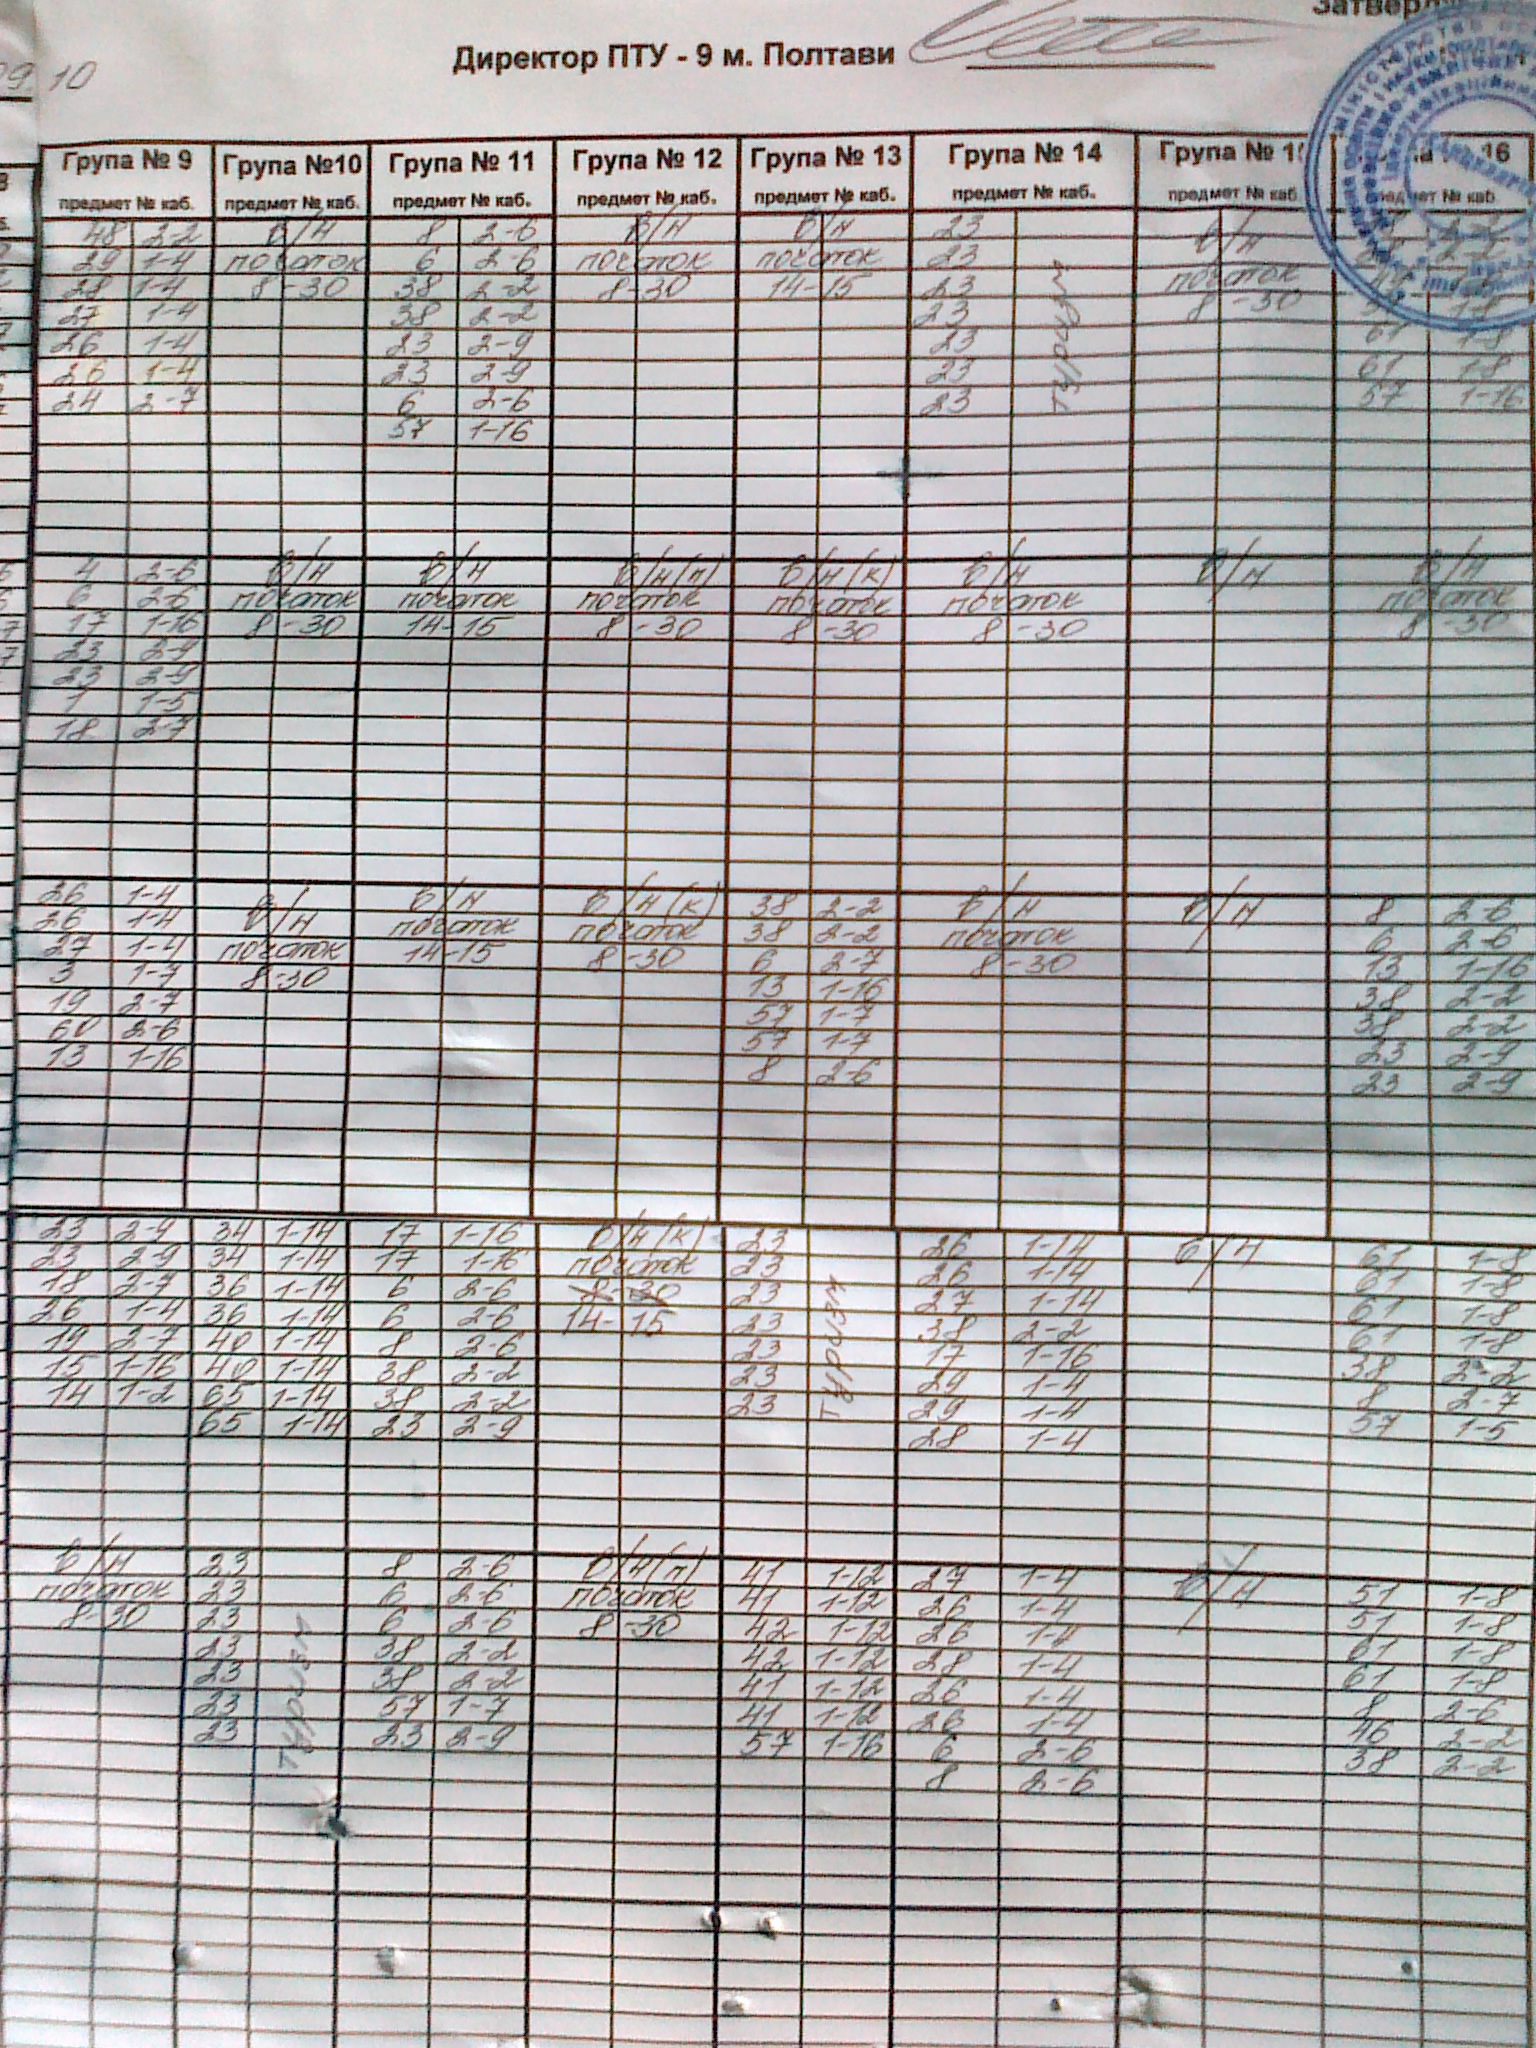 Директор ПТУ - 9 м. Полтави
10
Група № 9 Група №10 Група № 11 Група № 12 Група № 13 Група № 14 Група № 16
предмет № каб. предмет № каб. предмет № каб. предмет № каб. предмет № каб. предмет № каб. предмет № каб. предмет № каб.
48 2-2 в/н 8 2-6 в/н в/н 23 в/н
29 1-4 початок 6 2-6 початок початок 23 початок 2-2
28 1-4 8-30 38 2-2 8-30 14-15 23 8-30
27 1-4 38 2-2 23
26 1-4 23 2-9 23 61 1-8
26 1-4 23 2-9 23 61 1-8
24 2-7 6 2-6 23 57 1-16
57 1-16
туризм
4 2-6 в/н в/н в/н(п) в/н(к) в/н в/н в/н
6 2-6 початок початок початок початок початок початок
17 1-16 8-30 14-15 8-30 8-30 8-30 8-30
23 2-9
23 2-9
1 1-5
18 2-7
26 1-4 в/н в/н в/н(к) 38 2-2 в/н в/н 8 2-6
26 1-4 початок початок початок 38 2-2 початок 6 2-6
27 1-4 8-30 14-15 8-30 6 2-7 8-30 13 1-16
3 1-7 13 1-16 38 2-2
19 2-7 57 1-7 38 2-2
60 2-6 57 1-7 23 2-9
13 1-16 8 2-6 23 2-9
23 2-9 34 1-14 17 1-16 в/н(к) 23 26 1-14 в/н 61 1-8
23 2-9 34 1-14 17 1-16 початок 23 26 1-14 61 1-8
18 2-7 36 1-14 6 2-6 8-30 23 27 1-14 61 1-8
26 1-4 36 1-14 6 2-6 14-15 23 38 2-2 61 1-8
19 2-7 40 1-14 8 2-6 23 17 1-16 38 2-2
15 1-16 40 1-14 38 2-2 23 29 1-4 8 2-7
14 1-2 65 1-14 38 2-2 23 29 1-4 57 1-5
65 1-14 23 2-9 28 1-4
туризм
в/н 23 8 2-6 в/н(п) 41 1-12 27 1-4 в/н 51 1-8
початок 23 6 2-6 початок 41 1-12 26 1-4 51 1-8
8-30 23 6 2-6 8-30 42 1-12 26 1-4 61 1-8
23 38 2-2 42 1-12 28 1-4 61 1-8
23 38 2-2 41 1-12 26 1-4 8 2-6
23 57 1-7 41 1-12 26 1-4 46 2-2
23 23 2-9 57 1-16 6 2-6 38 2-2
8 2-6
туризм